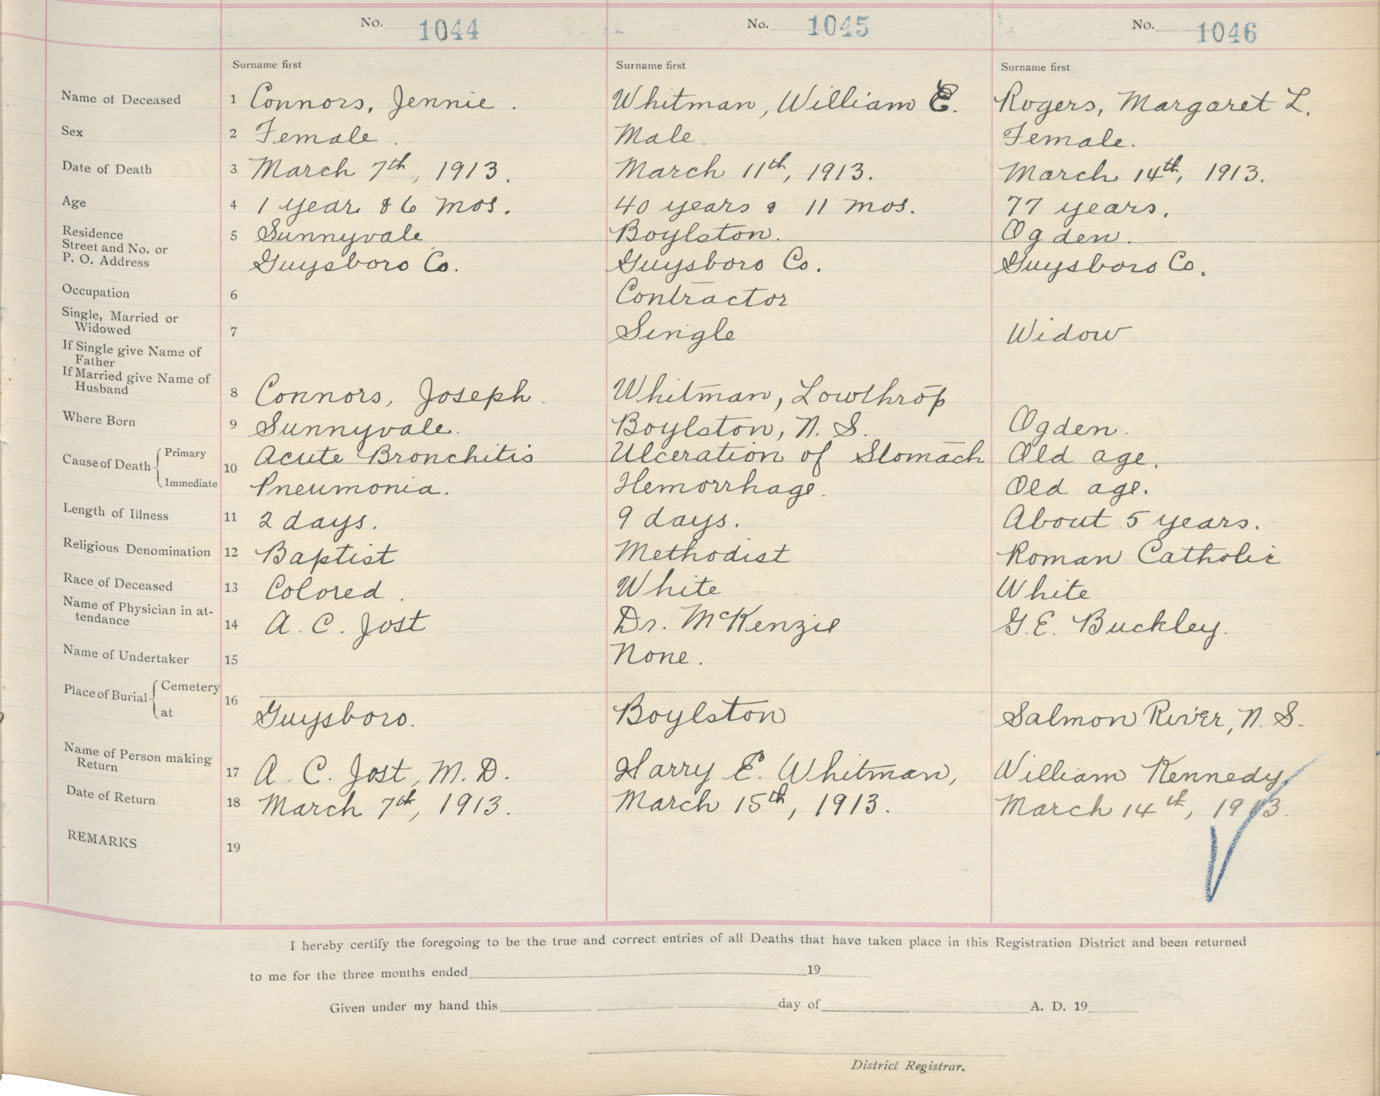 No. 1044 No. 1045 No. 1046
Surname first Surname first Surname first
Name of Deceased 1 Connors, Jennie. Whitman, William E. Rogers, Margaret L.
Sex 2 Female. Male. Female.
Date of Death 3 March 7th, 1913. March 11th, 1913. March 14th, 1913.
Age 4 1 year & 6 mos. 40 years & 11 mos. 77 years.
Residence 5 Sunnyvale Boylston. Ogden.
Street and No. or
P. O. Address Guysboro Co. Guysboro Co. Guysboro Co.
Occupation 6 Contractor
Single, Married or
Widowed 7 Single Widow
If Single give Name of
Father
If Married give Name of
Husband 8 Connors, Joseph. Whitman, Lowthrop
Where Born 9 Sunnyvale. Boylston, N. S. Ogden.
Cause of Death Primary 10 Acute Bronchitis Ulceration of Stomach Old age.
Immediate Pneumonia. Hemorrhage. Old age.
Length of Illness 11 2 days. 9 days. About 5 years.
Religious Denomination 12 Baptist Methodist Roman Catholic
Race of Deceased 13 Colored. White White
Name of Physician in at-
tendance 14 A. C. Jost Dr. McKenzie G. E. Buckley.
Name of Undertaker 15 None.
Place of Burial Cemetery 16
at Guysboro. Boylston Salmon River, N. S.
Name of Person making
Return 17 A. C. Jost, M. D. Harry E. Whitman, William Kennedy
Date of Return 18 March 7th, 1913. March 15th, 1913. March 14th, 1913.
REMARKS 19
I hereby certify the foregoing to be the true and correct entries of all Deaths that have taken place in this Registration District and been returned
to me for the three months ended 19
Given under my hand this day of A. D. 19
District Registrar.